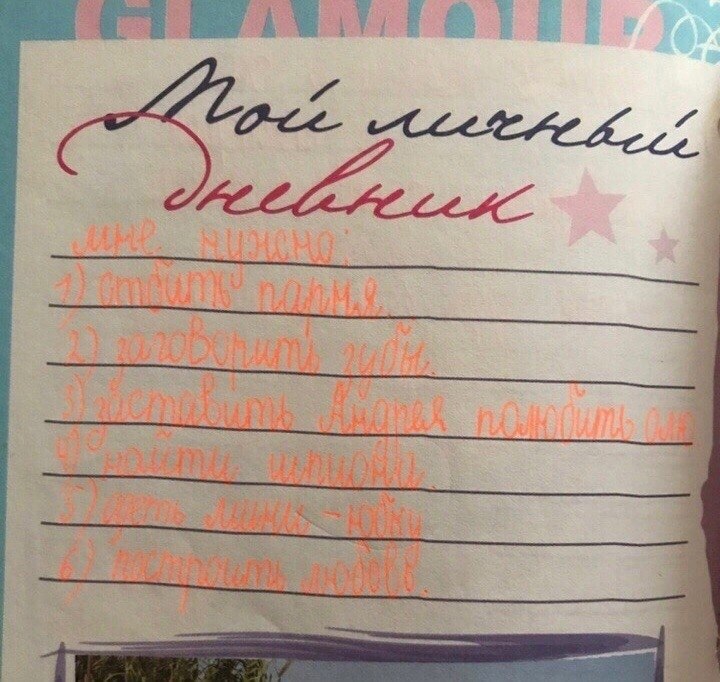 GLAMOUR
Мой личный
Дневник
мне нужно:
1) отбить парня.
2) заговорить зубы.
3) заставить Андрея полюбить олю
4) найти шпиони.
5) одеть мини-юбку
6) построить любовв.